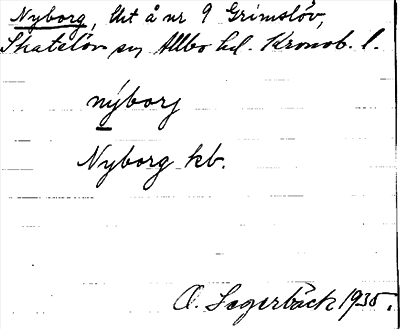 Nyborg, Ut å nr 9 Grimslöv,
Skatelöv sn Allbo hd. Kronob. l.
nýborj
Nyborg kb.
O. Segerbäck 1935.